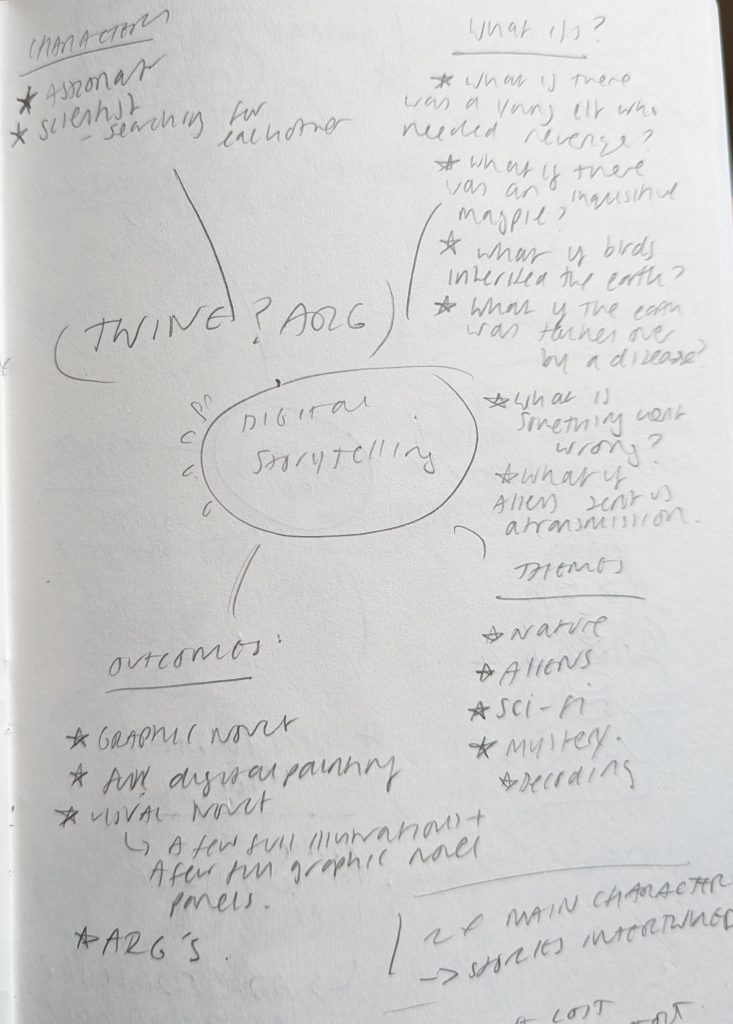 CHARACTERS
★ Astronat
★ Scientist
- searching for
each other
What ifs?
★ What if there
was a young elf who
needed revenge?
★ What if there
was an inquisitive
magpie?
★ What if birds
inherited the earth?
★ What if the earth
was taken over
by a disease?
★ What if
something went
wrong?
★ What if
Aliens sent us
a transmission.
(TWINE? ARG)
DIGITAL
STORYTELLING
THEMES
★ Nature
★ Aliens
★ Sci-fi
★ Mystery.
★ Decoding
OUTCOMES:
★ GRAPHIC NOVEL
★ full digital painting
★ VISUAL NOVEL
↳ A few full illustrations +
A few full graphic novel
panels.
★ ARG'S.
MAIN CHARACTER
→ STORIES INTERTWINED
LOST